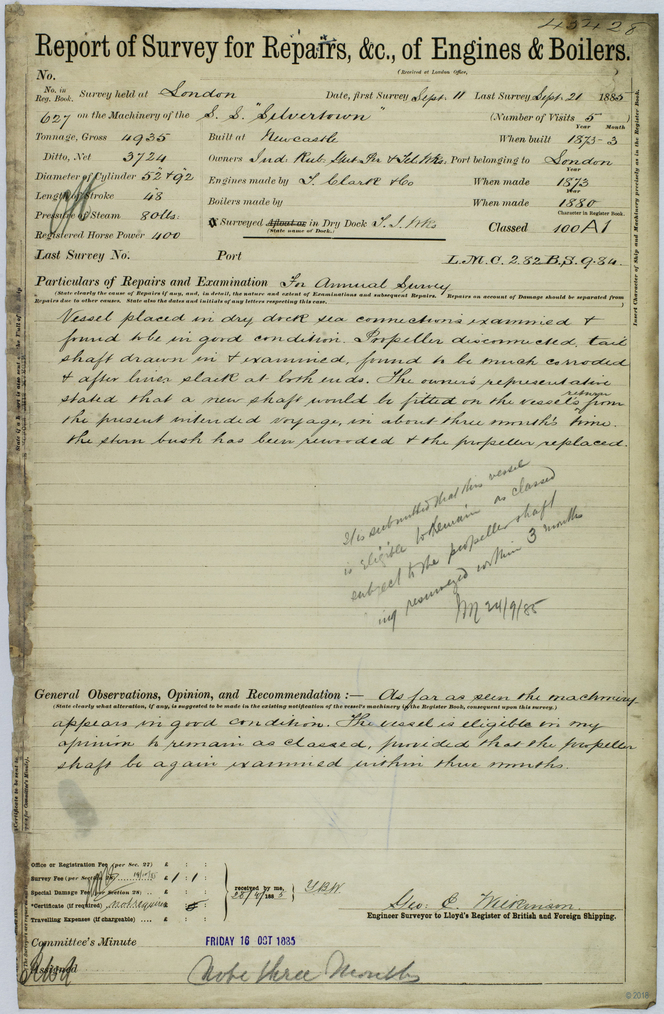 45428
Report of Survey for Repairs, &c., of Engines & Boilers.
(Received at London Office,
No.
No. in Reg. Book. Survey held at London Date, first Survey Sept. 11 Last Survey Sept. 21 1885
627 on the Machinery of the S. S. "Silvertown" (Number of Visits 5)
Year Month
Tonnage, Gross 4935 Built at Newcastle When built 1873-3
Ditto, Net 3724 Owners Ind. Rub. Gut. Per. & Tel. Wks. Port belonging to London
Year
Diameter of Cylinder 52 & 92 Engines made by T. Clark & Co When made 1873
Year
Length of Stroke 48 Boilers made by When made 1880
Character in Register Book.
Pressure of Steam 80 lbs. Surveyed Afloat or in Dry Dock Classed 100A1
(State name of Dock.)
Registered Horse Power 400
Last Survey No. Port L.M.C. 2.82 B.S. 9.84.
Particulars of Repairs and Examination For Annual Survey
(State clearly the cause of Repairs if any, and, in detail, the nature and extent of Examinations and subsequent Repairs. Repairs on account of Damage should be separated from
Repairs due to other causes. State also the dates and initials of any letters respecting this case.
Vessel placed in dry dock sea connections examined &
found to be in good condition. Propeller disconnected, tail
shaft drawn in & examined, found to be much corroded
& after liner slack at both ends. The owner's representative
stated that a new shaft would be fitted on the vessel's return from
the present intended voyage, in about three month's time.
the stern bush has been rewooded & the propeller replaced.
It is submitted that this vessel
is eligible to remain as classed
subject to the propeller shaft
ing resurveyed within 3 months
24/9/85
General Observations, Opinion, and Recommendation :— As far as seen the machinery
(State clearly what alteration, if any, is suggested to be made in the existing notification of the vessel's machinery in the Register Book, consequent upon this survey.)
appears in good condition. The vessel is eligible in my
opinion to remain as classed, provided that the propeller
shaft be again examined within three months.
Office or Registration Fee (per Sec. 27) £ : :
Survey Fee (per Section 28) £ 1 : 1 :
Special Damage Fee (per Section 28) .. £ : :
*Certificate (if required) not required £ : :
Travelling Expenses (if chargeable) .... £ : :
received by me,
Geo: E. Wilkinson.
Engineer Surveyor to Lloyd's Register of British and Foreign Shipping.
Committee's Minute FRIDAY 16 OCT 1885
Assigned Note three Months
Insert Character of Ship and Machinery precisely as in the Register Book.
© 2018